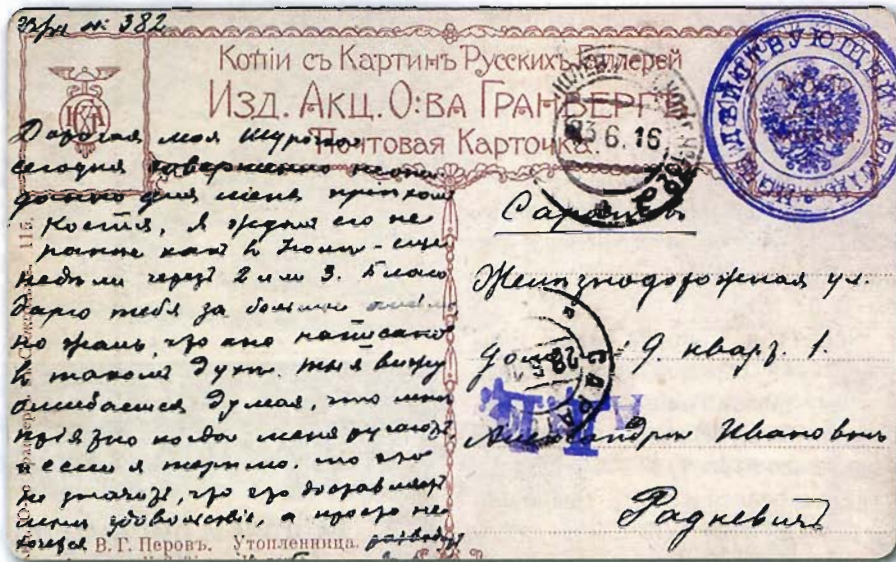 № 382
Копіи съ Картинъ Русскихъ Галлерей
Изд. Акц. О-ва Гранбергъ
Почтовая Карточка.
23 6. 16
Дорогая моя Шурочка
сегодня совершенно неожи
данно для меня пріѣхалъ
Костя, я ждалъ его не
раньше какъ къ – еще
недѣли черезъ 2 или 3. Благо
дарю тебя за большое письмо
но жаль, что оно написано
въ такомъ духѣ. Ты я вижу
ошибаешься думая, что мнѣ
пріязно когда меня ругаютъ
и если я терплю. то это
не значитъ, что это доставляетъ
мнѣ удовольствіе, а просто не
хочется
В. Г. Перовъ. Утопленница.
Саратовъ
Желѣзнодорожная ул.
домъ 9. кварт. 1.
Александрѣ Ивановнѣ
Радкевичъ